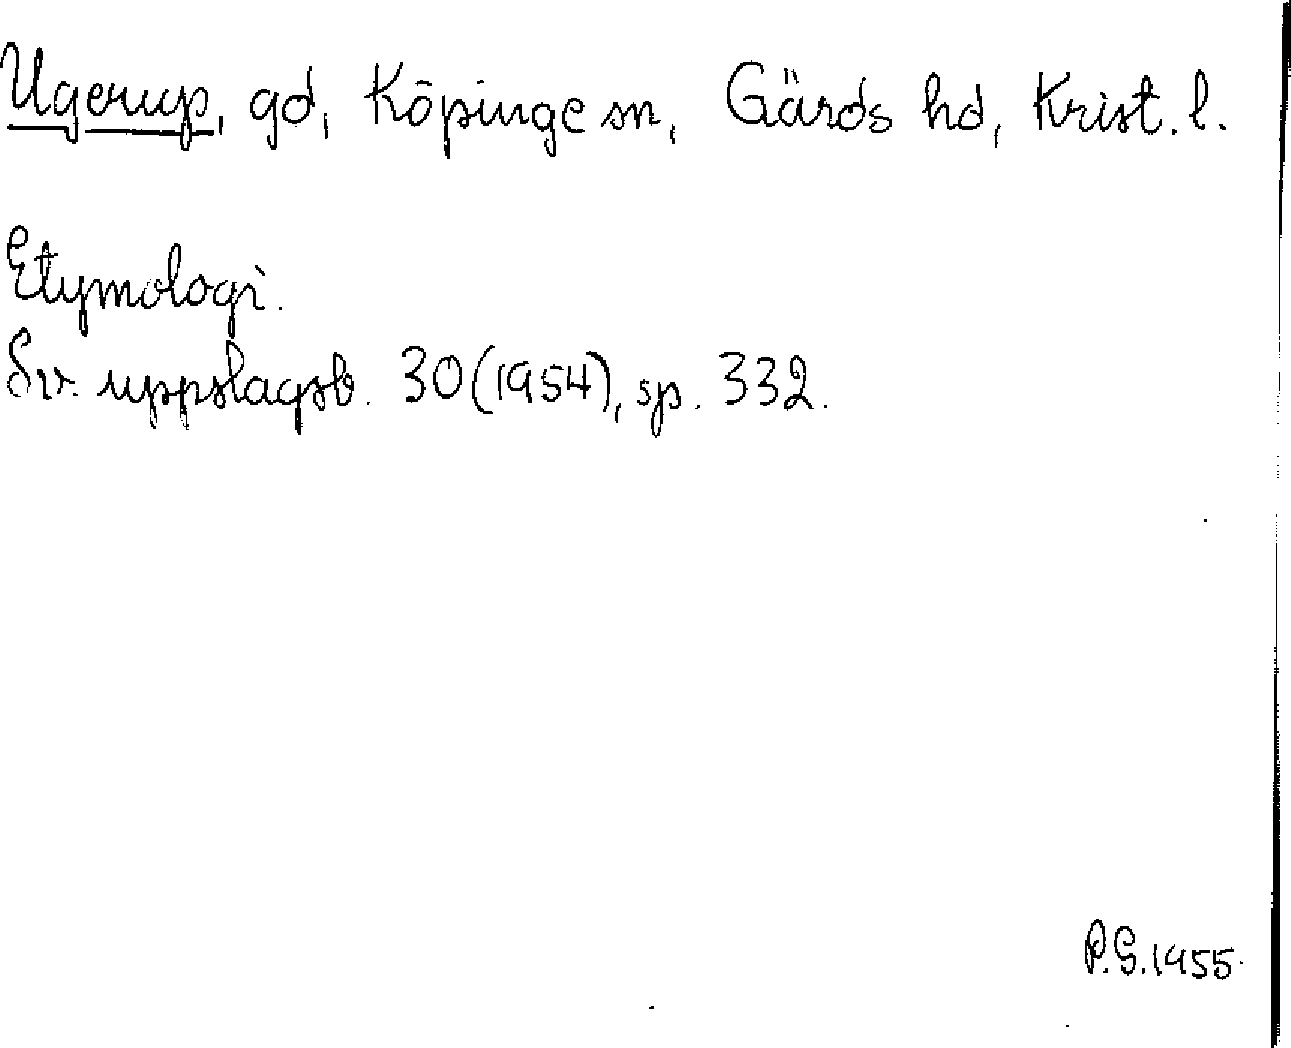 Ugerup, gd, Köpinge sn, Gärds hd, Krist. l.
Etymologi.
Sv. uppslagsb. 30 (1954), sp. 332.
P.G. 1955.